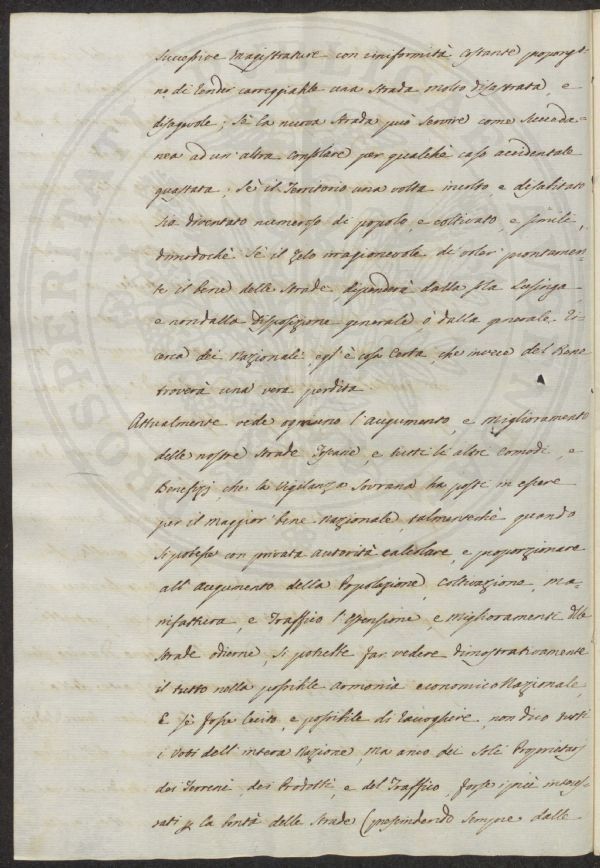 successive Magistrature con uniformità costante propongo-
no di render carreggiabile una strada molto disastrata, e
disagevole; Se la nuova strada può servire come succeda-
nea ad un' altra consolare per qualche caso accidentale
guastata; Se il Territorio una volta incolto e disabitato
sia diventato numeroso di popolo, e coltivato, e simile,
dimodochè Se il zelo irragionevole di voler prontamen-
te il bene delle strade dipenderà dalla sola lusinga
e non dalla disposizione generale o dalla generale Ri-
cerca dei Nazionali egl' è cosa certa, che invece del Bene
troverà una vera perdita.
Attualmente vede ognuno l'augumento, e miglioramento
delle nostre strade, e tutti li altri comodi, e
Benefizj, che la Vigilanza Sovrana ha posti in essere
per il maggior bene Nazionale, talmentechè quando
si potesse con privata autorità calcolare, e proporzionare
all' augumento della Popolazione, Coltivazione, Ma-
nifattura, e Traffico l'espensione, e miglioramenti delle
strade odierne, si potrebbe far vedere dimostrativamente
il tutto nella possibile armonia economico Nazionale,
E se fosse lecito, e possibile di raccogliere, non dico tutti
i Voti dell' intera Nazione, ma anco dei soli Proprietarj
dei Terreni, dei Prodotti, e del Traffico, forse i più interes-
sati p. la bontà delle strade (prescindendo sempre dalle
PROSPERITATI PUBLICAE